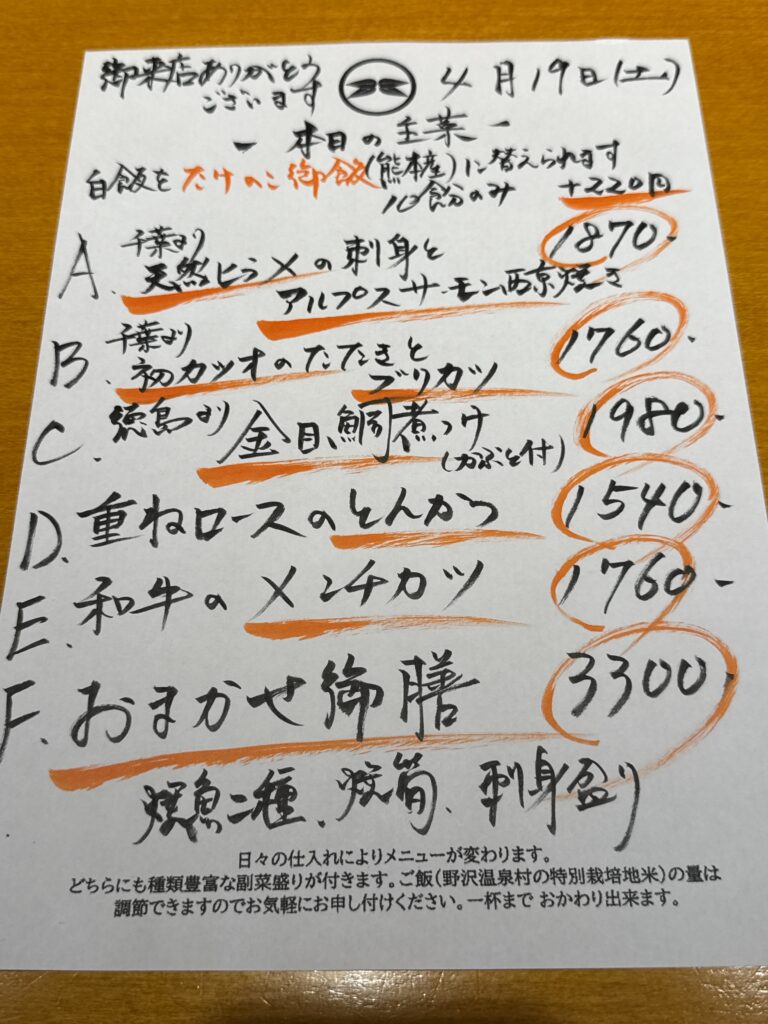 御来店ありがとう
ございます
4月19日(土)
- 本日の主菜 -
白飯をたけのこ御飯(熊本産)に替えられます
10食分のみ +220円
A. 千葉より
天然ヒラメの刺身と
アルプスサーモン西京焼き 1870-
B. 千葉より
初カツオのたたきと
ブリカツ 1760-
C. 徳島より 金目鯛煮つけ
(かぶと付) 1980-
D. 重ねロースのとんかつ 1540-
E. 和牛のメンチカツ 1760-
F. おまかせ御膳 3300-
焼魚二種、焼筍、刺身盛り
日々の仕入れによりメニューが変わります。
どちらにも種類豊富な副菜盛りが付きます。ご飯(野沢温泉村の特別栽培地米)の量は
調節できますのでお気軽にお申し付けください。一杯まで おかわり出来ます。